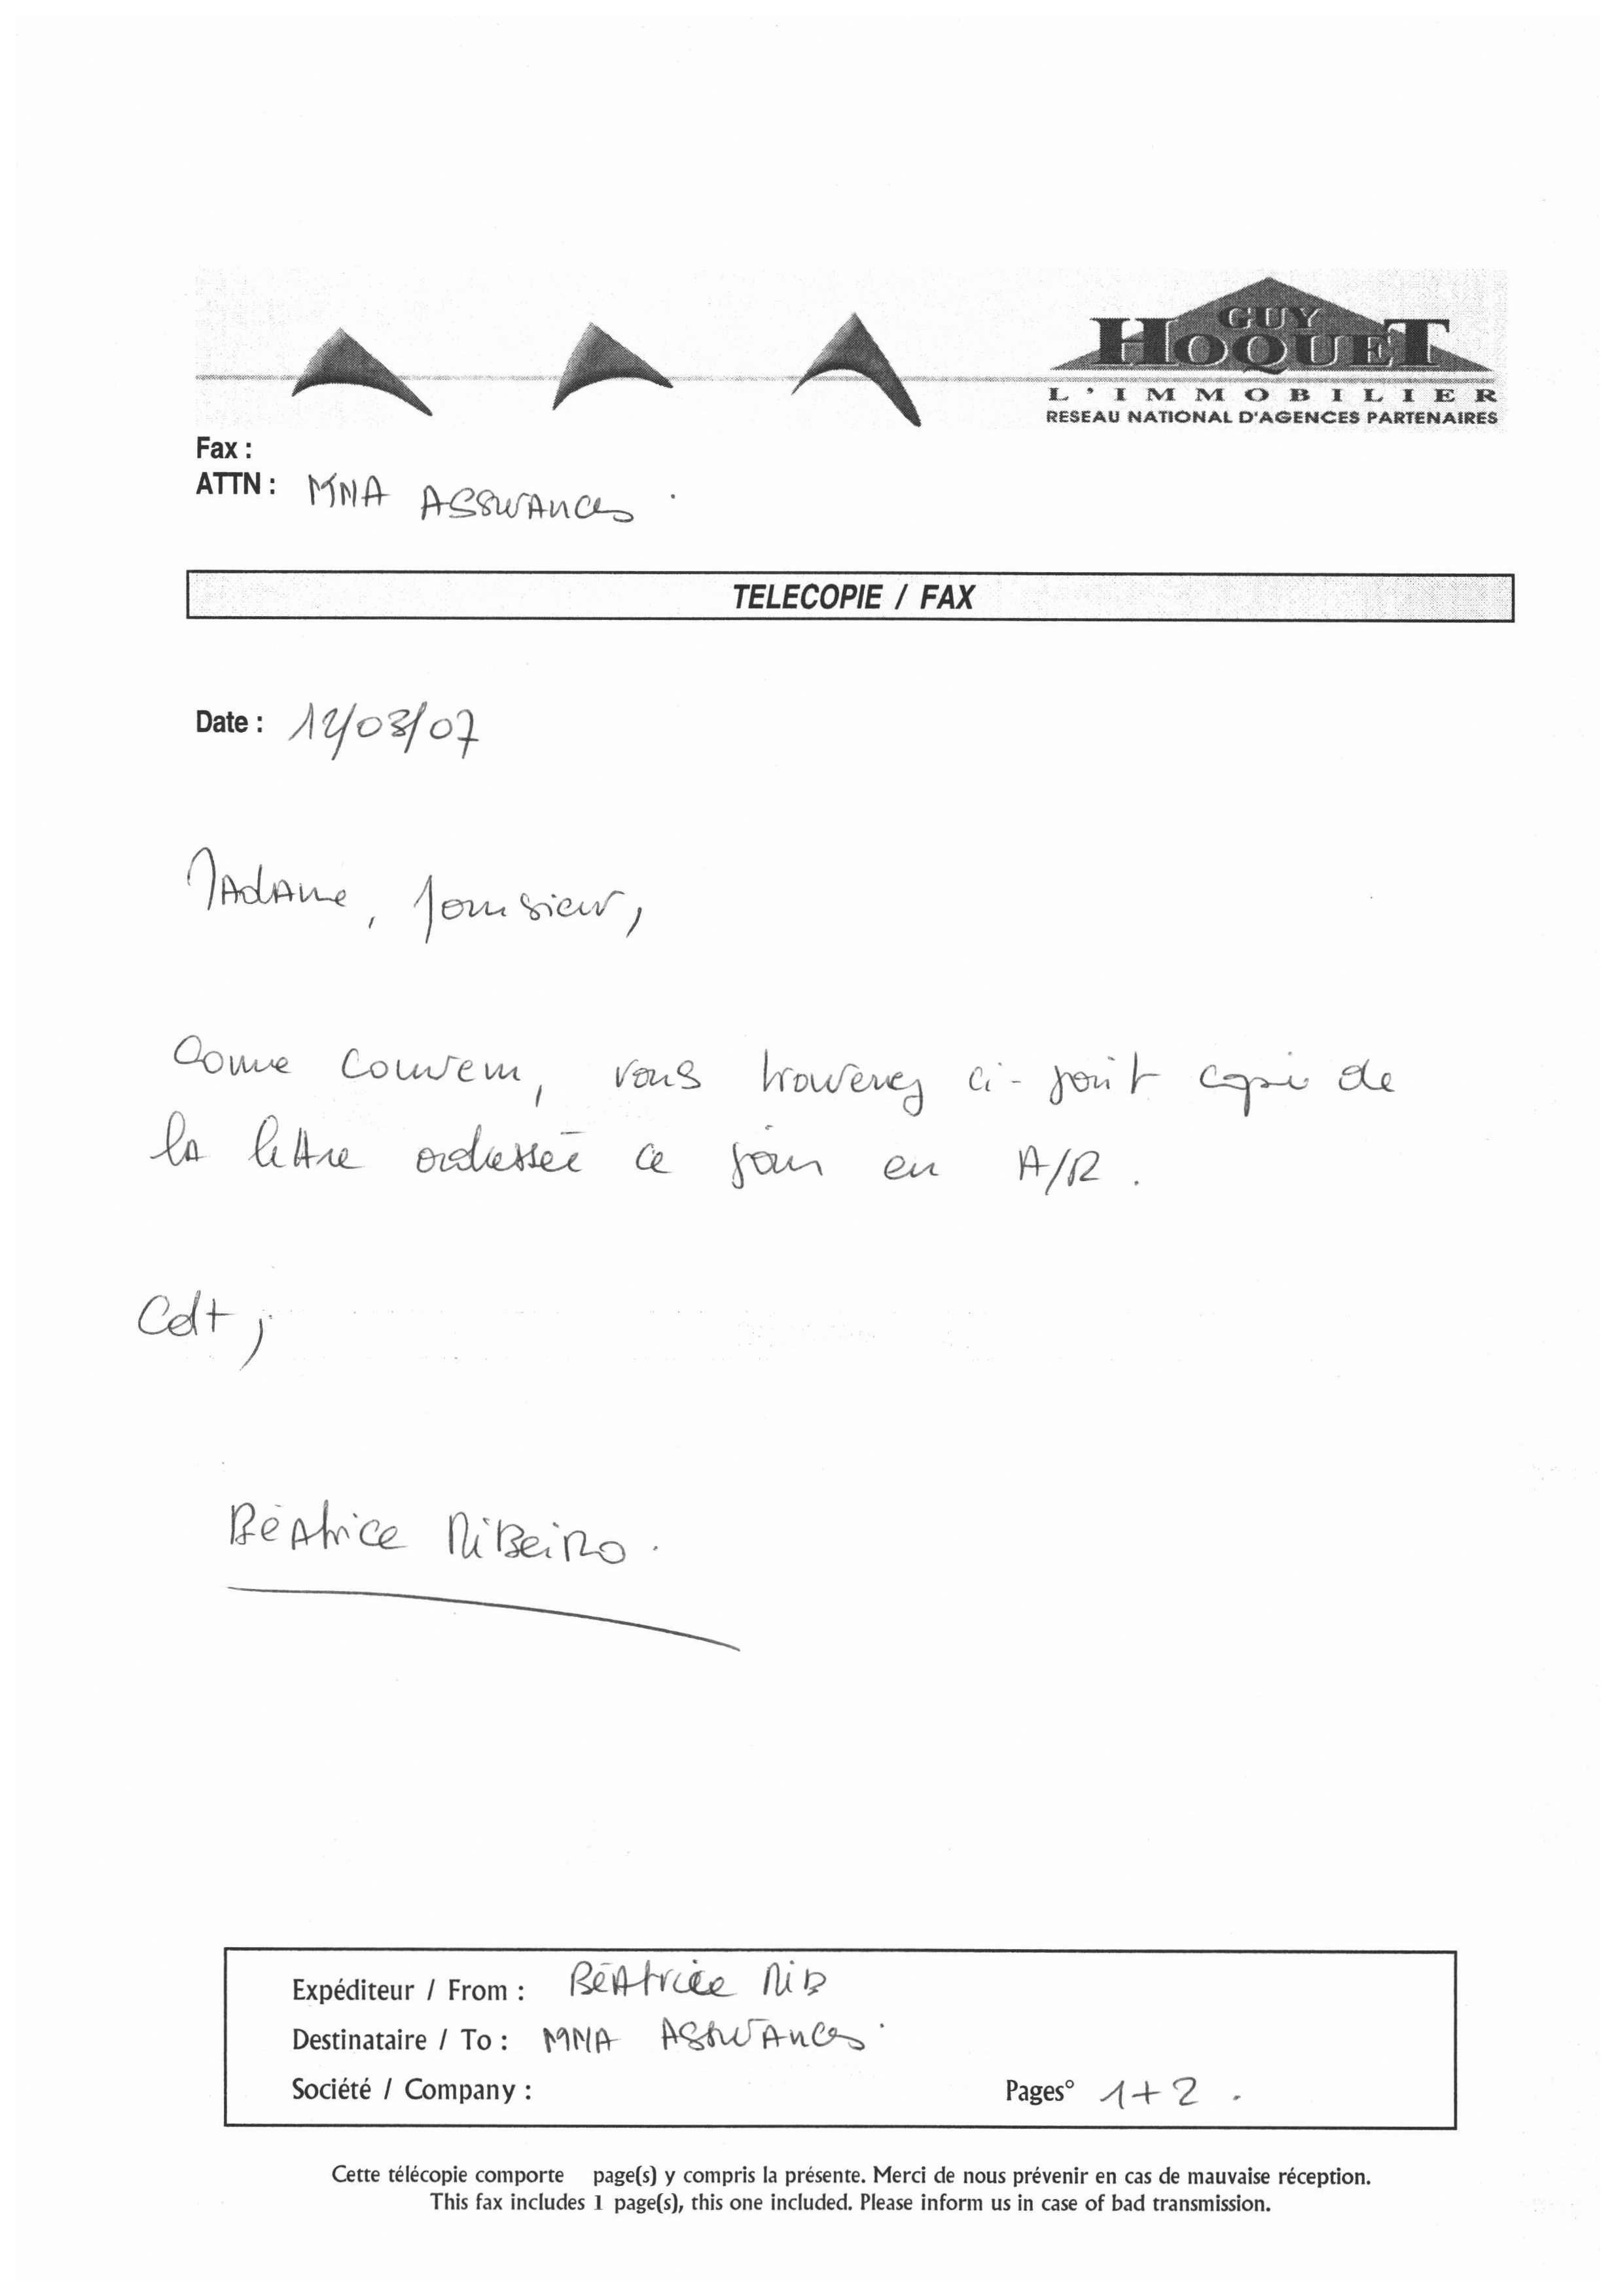 GUY
HOQUET
L'IMMOBILIER
RESEAU NATIONAL D'AGENCES PARTENAIRES
Fax :
ATTN : MMA ASSURANCES.
TELECOPIE / FAX
Date : 12/03/07
Madame, Monsieur,
Comme convenu, vous trouverez ci-joint copie de
la lettre adressée ce jour en A/R.
Cdt,
Béatrice RiBeiRo.
Expéditeur / From : BéAtrice RiB
Destinataire / To : MMA ASSURANCES.
Société / Company :
Pages° 1+2.
Cette télécopie comporte page(s) y compris la présente. Merci de nous prévenir en cas de mauvaise réception.
This fax includes 1 page(s), this one included. Please inform us in case of bad transmission.